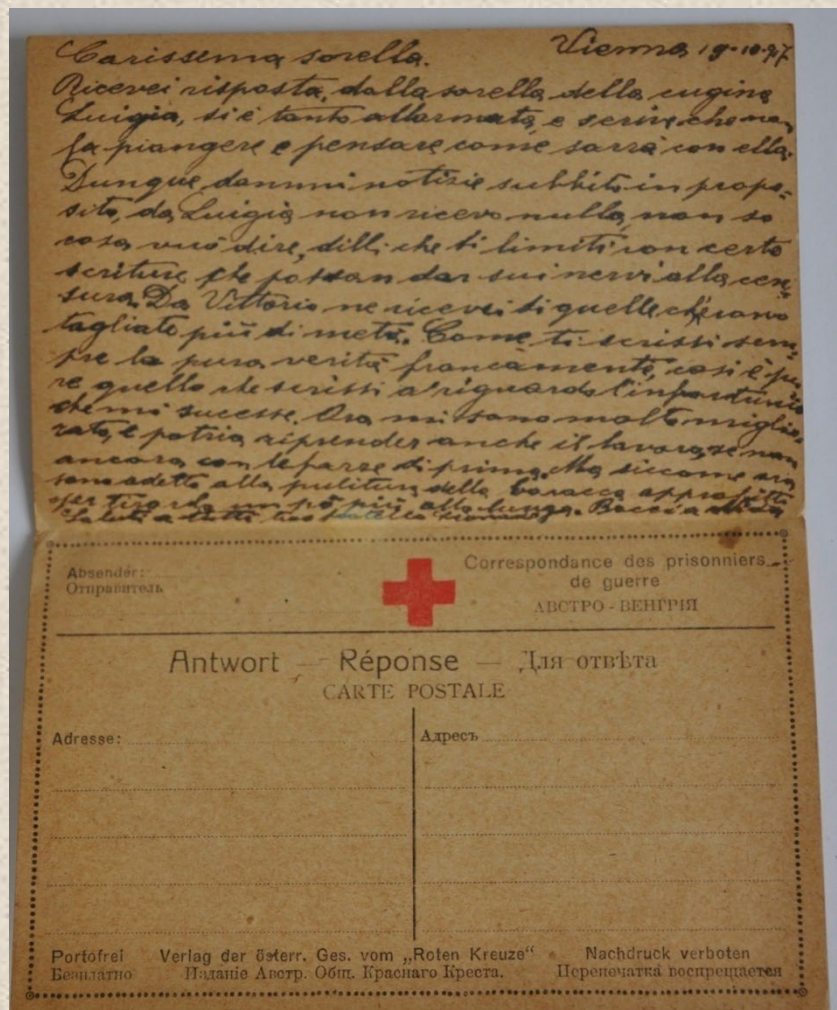 Carissema sorella. Vienna 19-10-917
Ricevei risposta, dalla sorella della cugina
Luigia, si è tanto allarmata, e scrive che non
fa piangere e pensare come sarrà con ella.
Dunque dammi notizie subbito in propo-
sito, da Luigia non ricevo nulla, non so
cosa vuò dire, dilli che ti limiti con certe
scriture che possan dar sui nervi alla cen-
sura. Da Vittorio ne ricevei di quelle ch'erano
tagliate più di metà. Come ti scrissi sem-
pre la pura verità francamente, cosi è pu-
re quello che scrissi a riguardo l'infortunio
che mi sucesse. Ora mi sono molto miglio-
rato, e potria riprender anche il lavoro, se non
ancora con le forze di prima. Ma siccome ora
sono adetto alla pulitura della baracca approfitto
per tirarla un pò più alla lunga. Bacci a
Saluti a tutti tuo fratello
Absender: Correspondance des prisonniers
Отправитель de guerre
АВСТРО-ВЕНГРІЯ
Antwort — Réponse — Для отвѣта
CARTE POSTALE
Adresse: Адресъ
Portofrei Verlag der österr. Ges. vom „Roten Kreuze“ Nachdruck verboten
Безплатно Изданіе Австр. Общ. Краснаго Креста. Перепечатка воспрещается